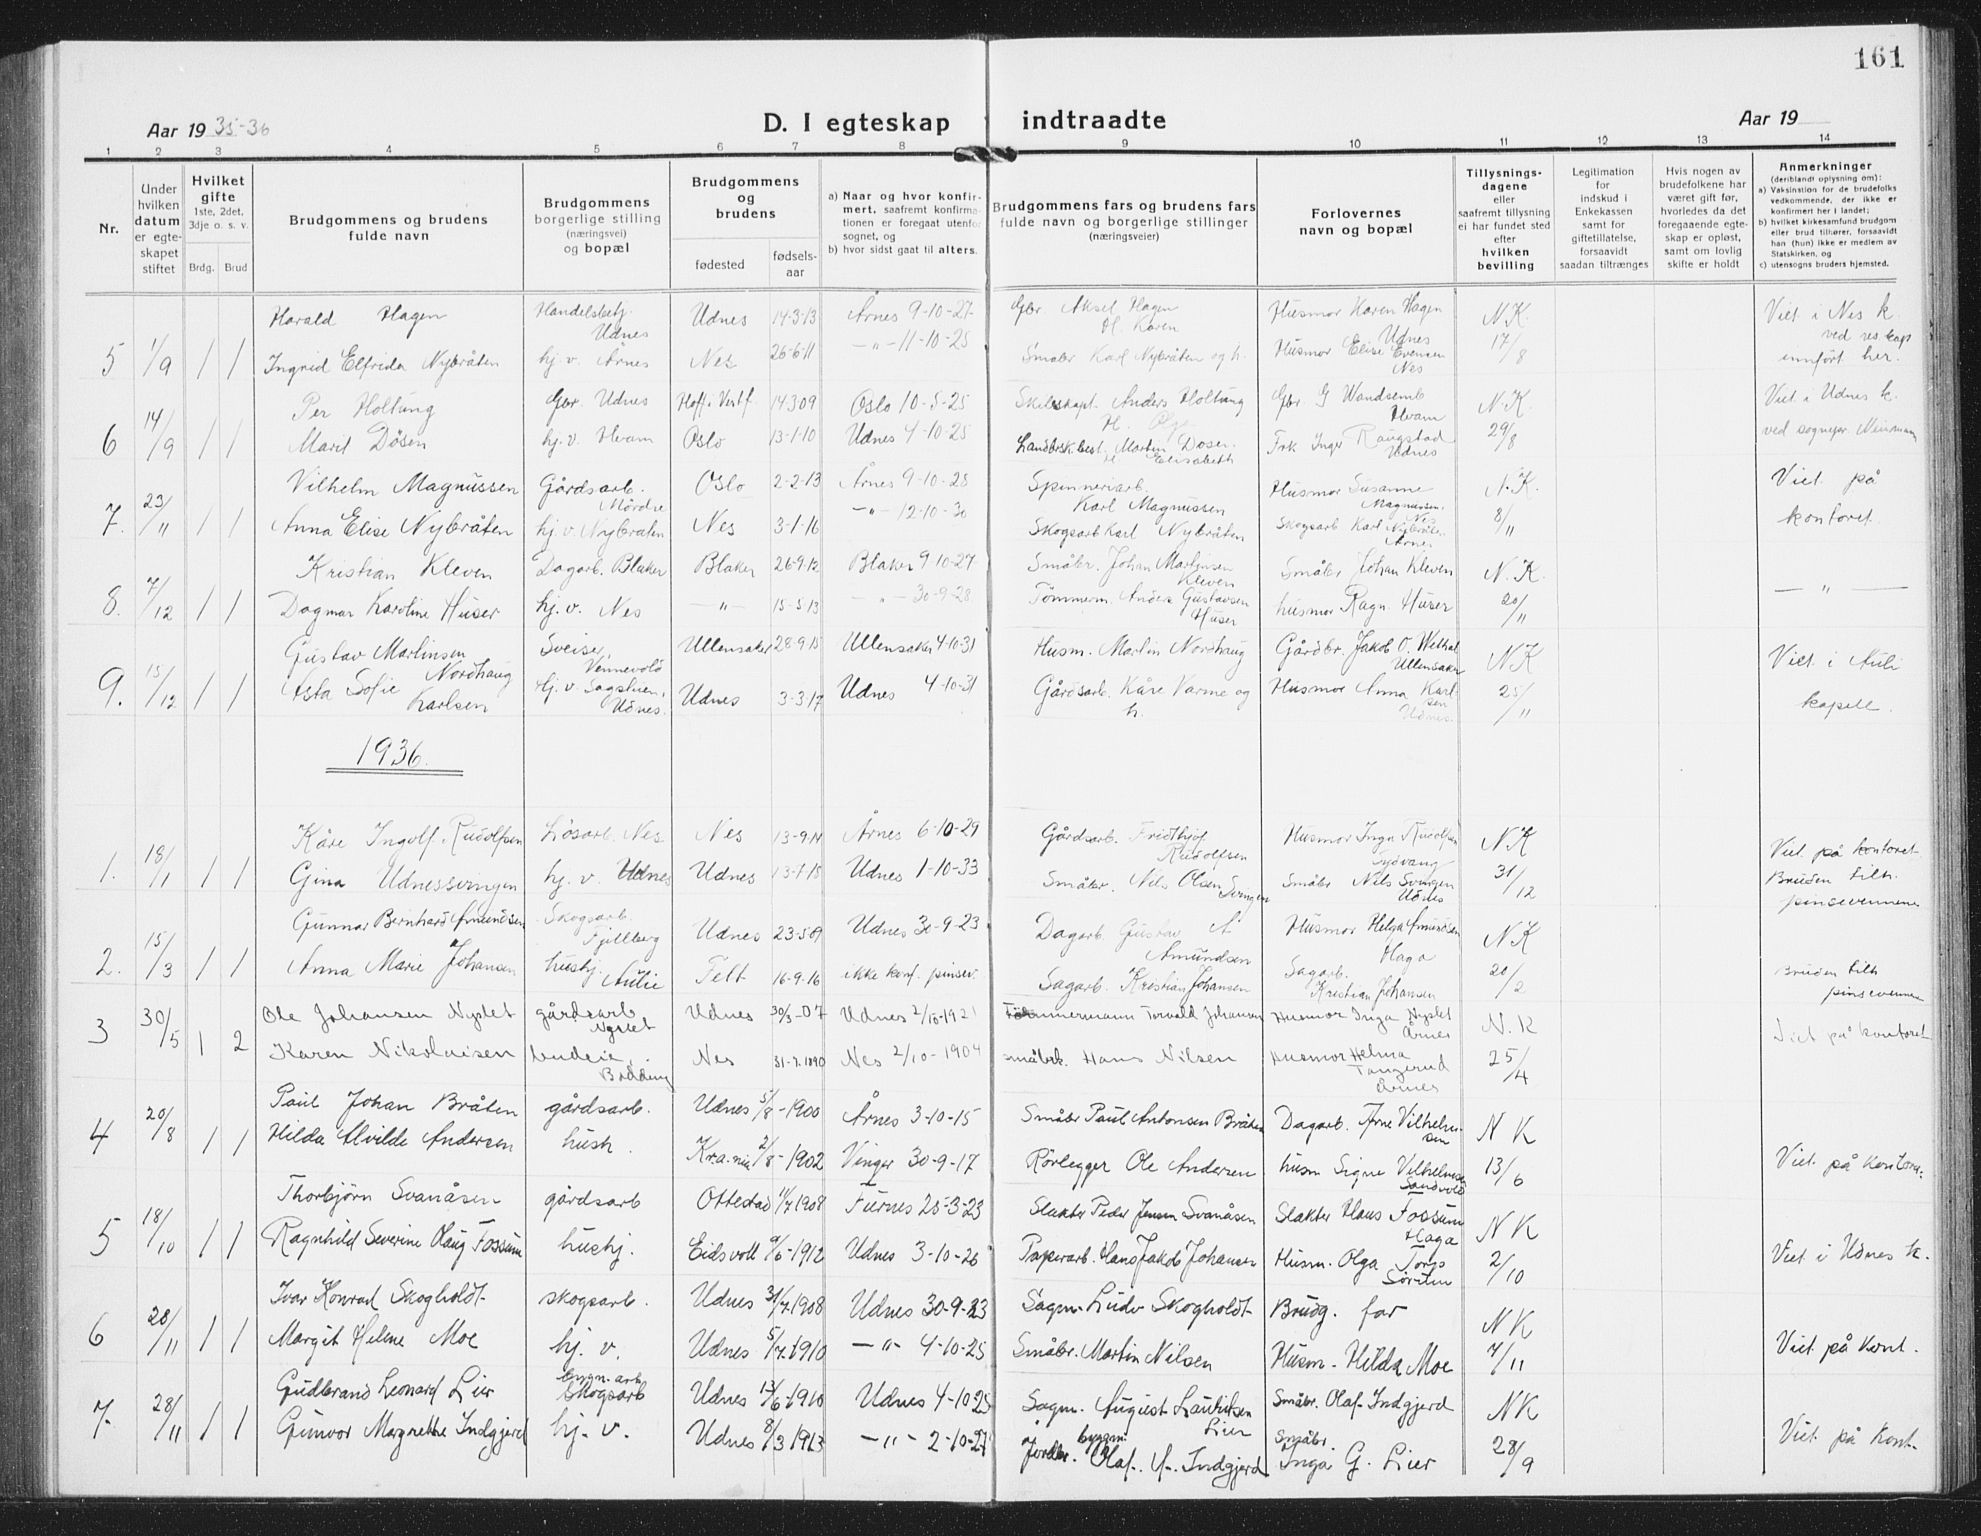 161
Aar 19 35-36
D. I egteskap indtraadte
Aar 19
1 2 3 4 5 6 7 8 9 10 11 12 13 14
Nr.
Under hvilken datum er egteskapet stiftet
Hvilket gifte
1ste, 2det, 3dje o. s. v.
Brdg. Brud
Brudgommens og brudens fulde navn
Brudgommens borgerlige stilling (næringsvei) og bopæl
Brudgommens og brudens
fødested
fødsels-aar
a) Naar og hvor konfirmert, saafremt konfirmationen er foregaat utenfor sognet, og
b) hvor sidst gaat til alters.
Brudgommens fars og brudens fars fulde navn og borgerlige stillinger (næringsveier)
Forlovernes navn og bopæl
Tillysningsdagene eller saafremt tillysning ei har fundet sted efter hvilken bevilling
Legitimation for indskud i Enkekassen samt for giftetillatelse, forsaavidt saadan tiltrænges
Hvis nogen av brudefolkene har været gift før, hvorledes da det foregaaende egteskap er opløst, samt om lovlig skifte er holdt
Anmerkninger
(deriblandt oplysning om):
a) Vaksinstion for de brudefolks vedkommende, der ikke er konfirmert her i landet;
b) hvilket kirkesamfund brudgom eller brud tilhører, forsaavidt han (hun) ikke er medlem av Statskirken, og
c) utensogns bruders hjemsted.
Harald Hagen Handelsbetj. Udnes Udnes 14-3-13 Årnes 9-10-27 Gbr. Aksel Hagen H. Karen Husmor Karen Hagen Udnes N.K. Viet i Nes k.
5 1/9 1 1 Ingrid Elfrida Nybråten hj. v. Årnes Nes 26-6-11 -"- 11-10-25 Småbr Karl Nybråten og h. Husmor Elise Evensen Nes 17/8 ved res. kap innført her.
Per Holtung Gbr. Udnes Hoff i Vestf. 14-3-09 Oslo 10-5-25 Skibskapt. Anders Holtung Gbr. G Wandsemb Hvam N.K. Viet i Udnes k.
6 14/9 1 1 Marit Døsen hj. v. Hvam Oslo 13-1-10 Udnes 4-10-25 Landbrsk.best. Martin Døsen. H Elisabeth Frk Inger Raugstad Udnes 29/8 ved sognepr.
Vilhelm Magnussen Gårdsarb. Mördre Oslo 2-2-13 Årnes 9-10-28 Spinneriarb. Karl Magnussen Husmor Susanne Magnussen. Nes N.K. Viet på
7. 23/11 1 1 Anna Elise Nybråten hj. v. Nybråten Nes 3-1-16 -"- 12-10-30 Skogsarb Karl Nybråten Skogsarb Karl Nybråten Årnes 8/11 kontoret.
Kristian Kleven Dagarb. Blaker Blaker 26-9-12 Blaker 9-10-27 Småbr. Johan Martinsen Kleven Småbr Johan Kleven N.K.
8. 7/12 1 1 Dagmar Karoline Huser hj. v. Nes -"- 15-5-13 -"- 30-9-28 Tömmerm. Anders Gustavsen Huser husmor Ragn. Huser 20/11 - " -
Gustav Martinsen Nordhaug Sveiser, Vennevold Ullensaker 28-9-15 Ullensaker 4-10-31 Husm. Martin Nordhaug Gårdbr. Jakob O. Wethal Ullensaker N K Viet i Auli
9. 15/12 1 1 Asta Sofie Karlsen Hj. v. Sagstuen, Udnes. Udnes 3-3-17 Udnes 4-10-31 Gårdsarb. Kåre Varme og h. Husmor Anna Karlsen Udnes. 25/11 kapell.
1936.
Kåre Ingolf Rudolfsen Lösarb. Nes Nes 13-9-14 Årnes 6-10-29 Gårdsarb. Fridthjof Rudolfsen Husmor Inga Rudolfsen N K Viet på kontoret
1. 18/1 1 1 Gina Udnessvingen hj. v. Udnes Udnes 13-1-18 Udnes 1-10-33 Småbr. Nils Olsen Svingen Småbr Nils Svingen Udnes 31/12 Bruden tilh. pinsevennene
Gunnar Bernhard Amundsen Skogsarb. Fjellberg Udnes 23-5-09 Udnes 30-9-23 Dagarb. Gustav A Amundsen Husmor Helga Amundsen Haga N K
2. 15/3 1 1 Anna Marie Johansen hushj. Aulie Fett 16-9-16 ikke konf. pinsev. Sagarb. Kristian Johansen Sagarb. Kristian Johansen 20/2 Bruden tilh pinsevennene
Ole Johansen Nyslet gårdsarb Nyslet Udnes 30/3-07 Udnes 2/10-1921 Tömmermann Torvald Johansen Husmor Inga Nyslet Årnes N.K
3 30/5 1 2 Karen Nikolaisen budeie, Brödding Nes 31-7-1890 Nes 2/10-1904 småbrk. Hans Nilsen Husmor Helma Tangerud Årnes 25/4 Viet på kontoret
Paul Johan Bråten gårdsarb. Udnes 5/8-1900 Årnes 3-10-15 Småbr Paul Antonsen Bråten Dagarb. Arne Vilhelmsen N K
4 20/8 1 1 Hilda Alvilde Andersen hush. Kra.nia 2/8-1902 Vinger 30-9-17 Rörlegger Ole Andersen husm Signe Vilhelmsen Sandvold 13/6 Viet på kontoret.
Thorbjörn Svanåsen gårdsarb Ottestad 11/7 1908 Furnes 25-3-23 Slakter Peder Jensen Svanåsen Slakter Hans Fossum Haga N K
5 18/10 1 1 Ragnhild Severine Olaug Fossum hushj. Eidsvoll 9/6-1912 Udnes 3-10-26 Papirarb. Hans Jakob Johansen Husm. Olga Torp 2/10 Viet i Udnes k.
Ivar Konrad Skogholdt skogsarb. Udnes 31/7-1908 Udnes 30-9-23 Sagm. Ludv Skogholdt Brudg. far N K
6 28/11 1 1 Margit Helene Moe hj. v. Udnes 5/7-1910 -"- 4-10-25 Småbr. Martin Nilsen Husm. Hilda Moe 7/11 Viet på kont.
Gudbrand Leonard Lier bygn.arb skogsarb Udnes 13/6-1910 Udnes 4-10-25 Sagm. August Lauritsen Lier Småbr. Olaf Indgjerd N K
7. 28/11 1 1 Gunvor Margrethe Indgjerd hj. v. Udnes 8/3 1913 -"- 2-10-27 Jordbr. bygm. Olaf. A. Indgjerd Småbr. Inga G. Lier 28/9 Viet på kont.